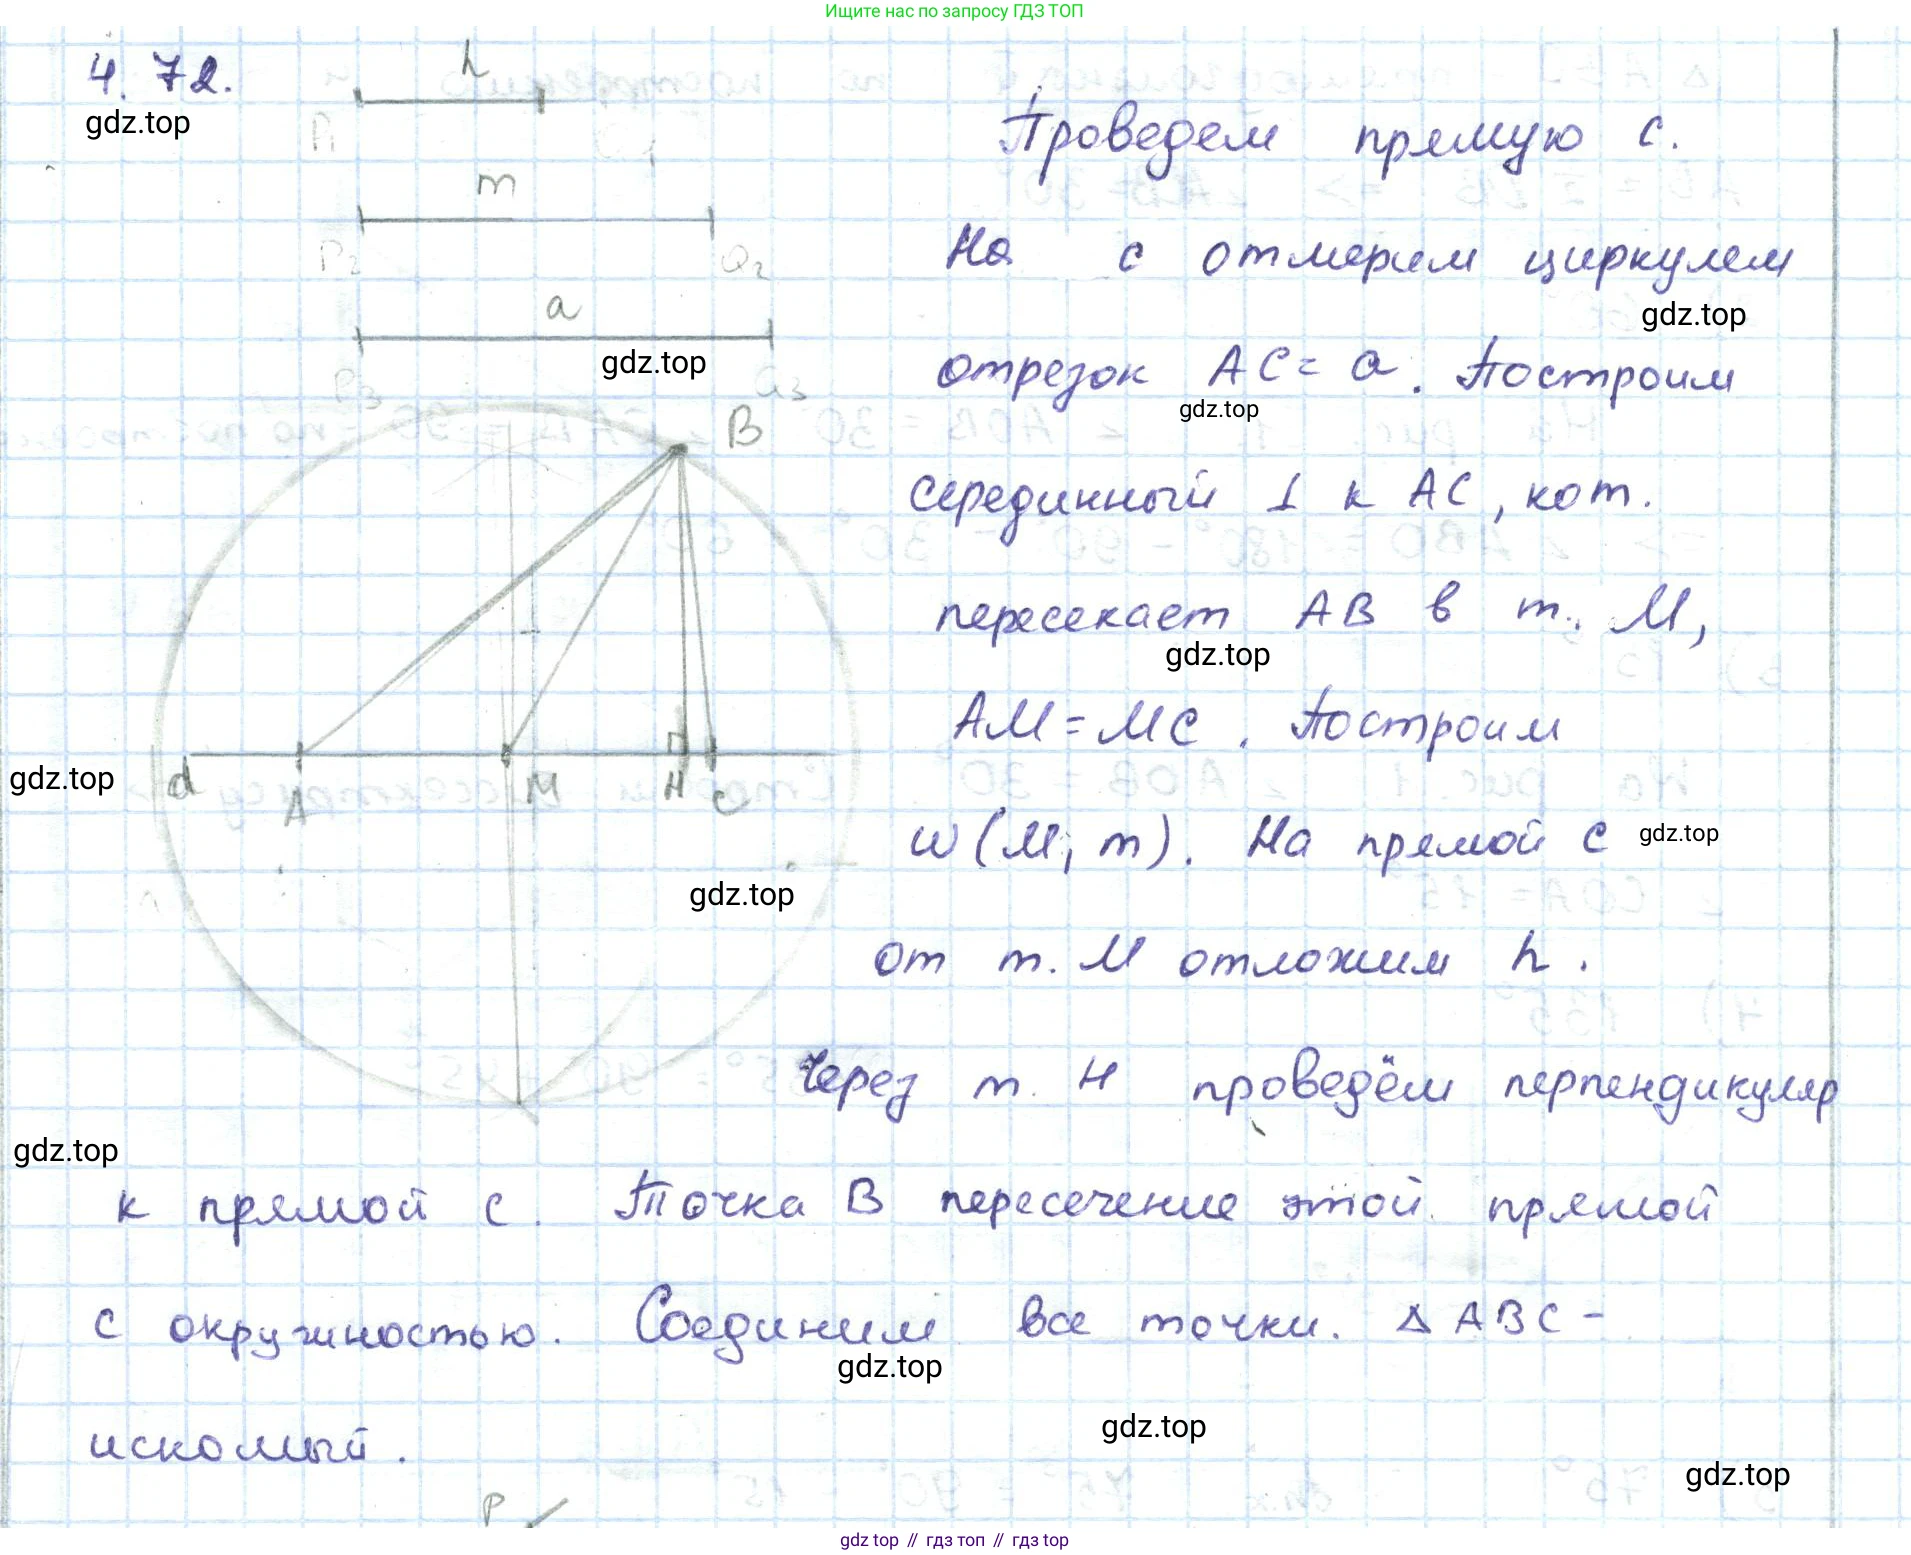 Ищите нас по запросу ГДЗ ТОП
4.72.
gdz.top
h
P1
m
P2 Q2
a
gdz.top
P3 Q3
B
d A M H C
gdz.top
gdz.top
Проведем прямую c.
На c отмерим циркулем
gdz.top
отрезок AC = a. Построим
gdz.top
серединный ⊥ к AC, кот.
пересекает AB в т. M,
gdz.top
AM = MC. Построим
w (M; m). На прямой c gdz.top
от т. M отложим h.
Через т. H проведём перпендикуляр
gdz.top
к прямой c. Точка B пересечение этой прямой
с окружностью. Соединим все точки. Δ ABC -
gdz.top
искомый.
gdz.top
gdz.top
P
gdz.top // гдз топ // гдз top